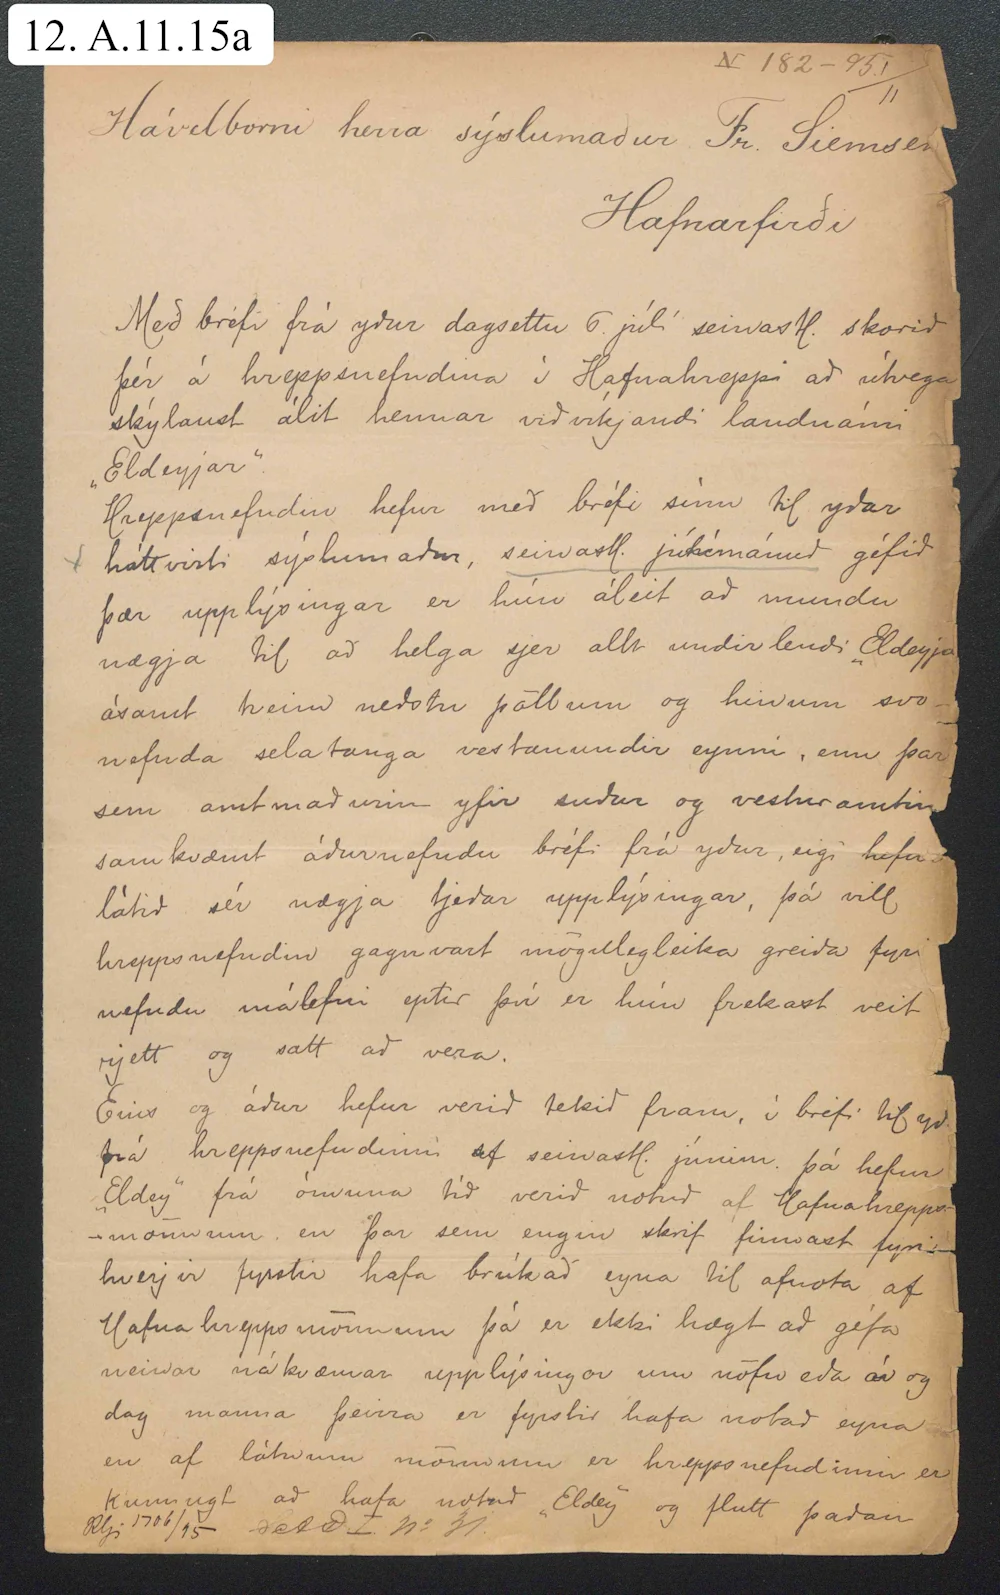 12. A.11.15a
N 182-95 I/II
Hávelborni herra sýslumaður Fr. Siemsen
Hafnarfirði
Með bréfi frá yður dagsettu 6. júlí seinastl. skorið
þér á hreppsnefndina í Hafnahreppi að útvega
skýlaust álit hennar viðvíkjandi landnámi
„Eldeyjar“.
Hreppsnefndin hefur með bréfi sínu til yðar
háttvirti sýslumaður, seinastl. júnímánuð géfið
þær upplýsingar er hún áleit að mundu
nægja til að helga sjer allt undirlendi „Eldeyja
ásamt tveim neðstu pöllum og hinum svo-
nefnda selatanga vestanundir eynni, enn þar
sem amtmaðurin yfir suður og vesturamtin
samkvæmt áðurnefndu bréfi frá yður, eigi hefur
látið sér nægja tjeðar upplýsingar, þá vill
hreppsnefndin gagnvart mögulegleika greiða fyri
nefndu málefni eptir því er hún frekast veit
rjett og satt að vera.
Eins og áður hefur verið tekið fram, í bréfi til yð
frá hreppsnefndinni af seinastl. júním. þá hefur
„Eldey“ frá ómuna tíð verið notuð af Hafnahrepps-
-mönnum en þar sem engin skrif finnast fyri-
hverjir fyrstir hafa brúkað eyna til afnota af
Hafnahreppsmönnum þá er ekki hægt að géfa
neinar nákvæmar upplýsingar um nöfn eða ár og
dag manna þeirra er fyrstir hafa notað eyna
en af látnum mönnum er hreppsnefndinni er
kunnugt að hafa notað „Eldey“ og flutt þaðan
Rhj 1706/95 I. No 31.